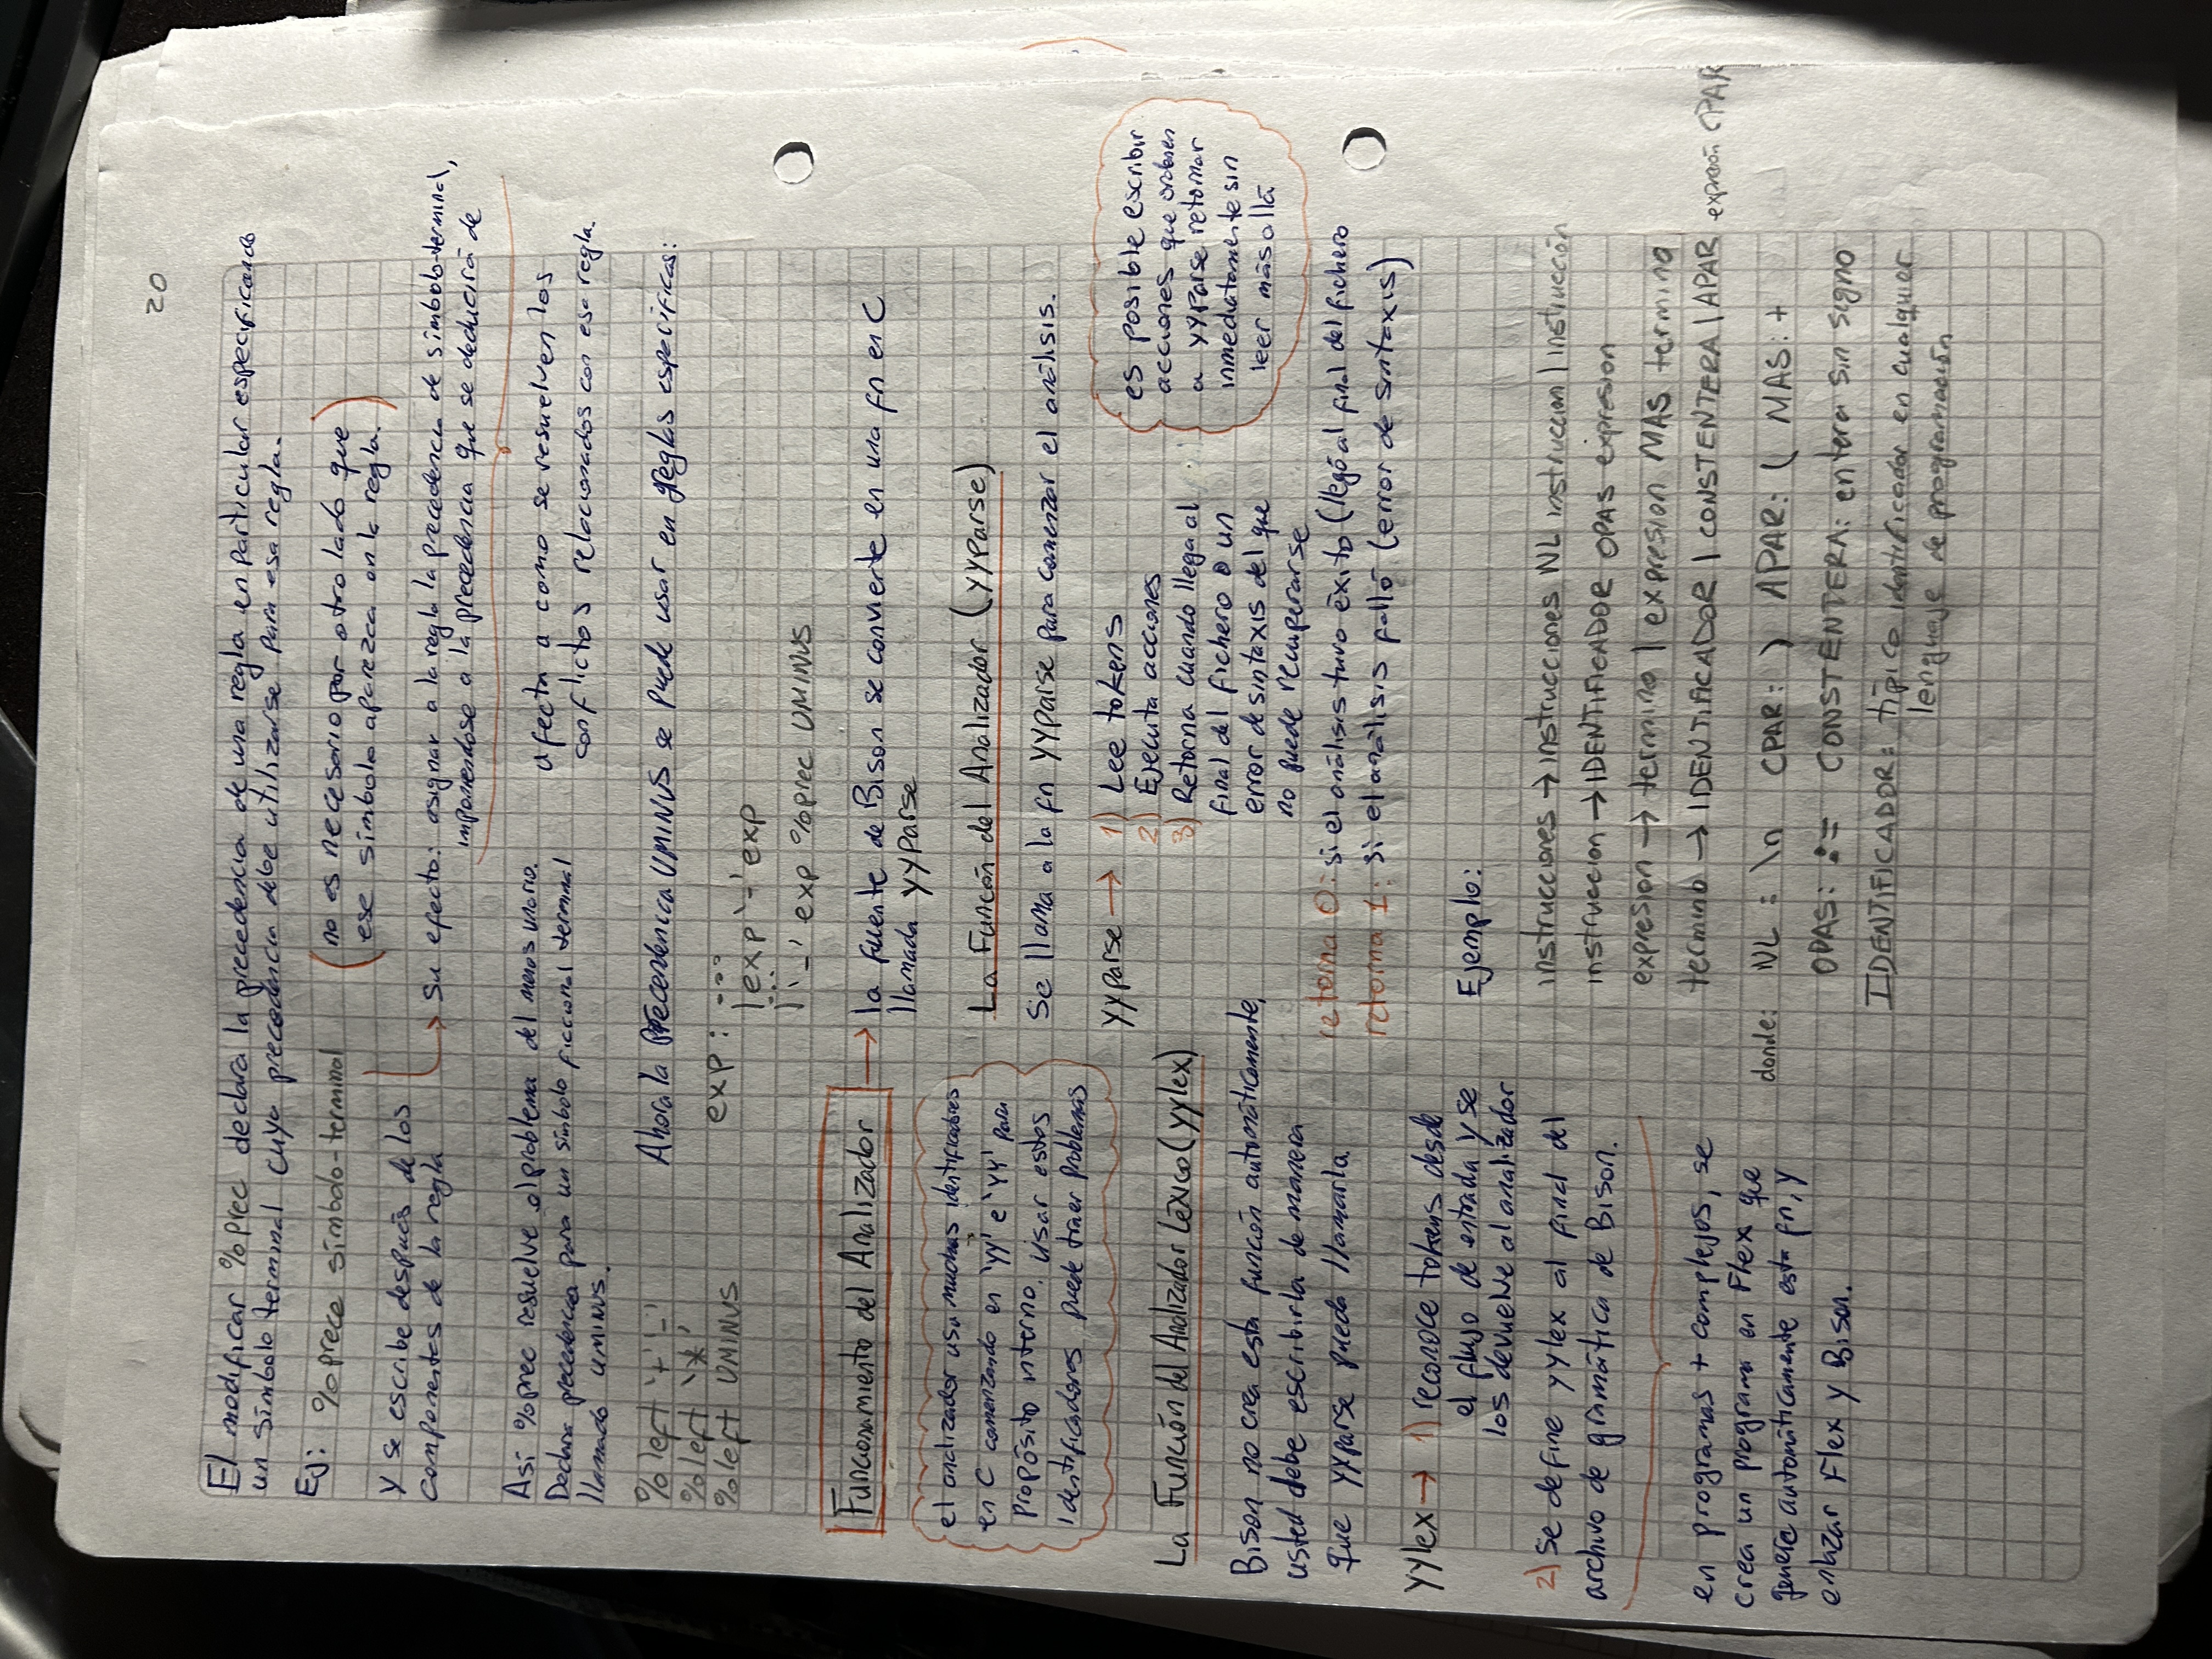 20
El modificar %prec declara la precedencia de una regla en particular especificando
un símbolo terminal cuya precedencia debe utilizarse para esa regla.
Ej: %prece símbolo-terminal
(no es necesario por otro lado que
ese símbolo aparezca en la regla.)
y se escribe después de los
componentes de la regla
→ Su efecto: asignar a la regla la precedencia de símbolo-terminal,
imponiendose a la precedencia que se deducirá de
Así %prec resuelve el problema del menos unario.
Declara precedencia para un símbolo ficcional terminal
llamado UMINUS.
afecta a como se resuelven los
conflictos relacionados con esa regla.
%left '+' '-'
%left '*'
%left UMINUS
Ahora la Precendencia UMINUS se puede usar en reglas especificas:
exp: ...
| exp '-' exp
...
| '-' exp %prec UMINUS
Funcionamiento del Analizador
→ la fuente de Bison se convierte en una fn en C
llamada yyparse
el analizador usa muchos identificadores
en C comenzando en 'yy' e 'YY' para
propósito interno. Usar estos
identificadores puede traer problemas
La Función del Analizador (yyparse)
Se llama a la fn yyparse para comenzar el análisis.
yyparse → 1) Lee tokens
2) Ejecuta acciones
3) Retorna cuando llega al
final del fichero o un
error de sintaxis del que
no puede recuperarse
es posible escribir
acciones que ordenen
a yyparse retornar
inmediatamente sin
leer más allá
retorna 0: si el análisis tuvo éxito (llegó al final del fichero
retorna 1: si el análisis falló (error de sintaxis)
La Función del Analizador Léxico (yylex)
Bison no crea esta función automáticamente,
usted debe escribirla de manera
que yyparse pueda llamarla.
yylex → 1) reconoce tokens desde
el flujo de entrada y se
los devuelve al analizador
2) Se define yylex al final del
archivo de gramática de Bison.
en programas + complejos, se
crea un programa en Flex que
genere automáticamente esta fn, y
enlazar Flex y Bison.
Ejemplo:
instrucciones → instrucciones NL instruccion | instrucción
instruccion → IDENTIFICADOR OPAS expresion
expresion → termino | expresion MAS termino
termino → IDENTIFICADOR | CONSTENTERA | APAR expresión CPAR
donde: NL: \n CPAR: ) APAR: ( MAS: +
OPAS: := CONSTENTERA: entera sin signo
IDENTIFICADOR: típico identificador en cualquier
lenguaje de programación